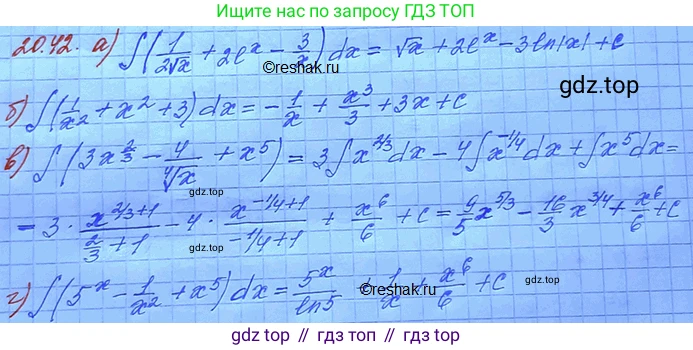 Ищите нас по запросу ГДЗ ТОП
2042. а) ∫(1/(2√x) + 2e^x − 3/x) dx = √x + 2e^x − 3ln|x| + c
©reshak.ru
gdz top
б) ∫(1/x² + x² + 3) dx = −1/x + x³/3 + 3x + c
в) ∫(3x^(2/3) − 4/⁴√x + x⁵) = 3∫x^(2/3) dx − 4∫x^(−1/4) dx + ∫x⁵ dx =
= 3 · x^(2/3+1)/(2/3+1) − 4 · x^(−1/4+1)/(−1/4+1) + x⁶/6 + c = 9/5 x^(5/3) − 16/3 x^(3/4) + x⁶/6 + c
gdz top
©reshak.ru
г) ∫(5^x − 1/x² + x⁵) dx = 5^x/ln5 + 1/x + x⁶/6 + c
gdz top // гдз топ // gdz.top // гдз топ